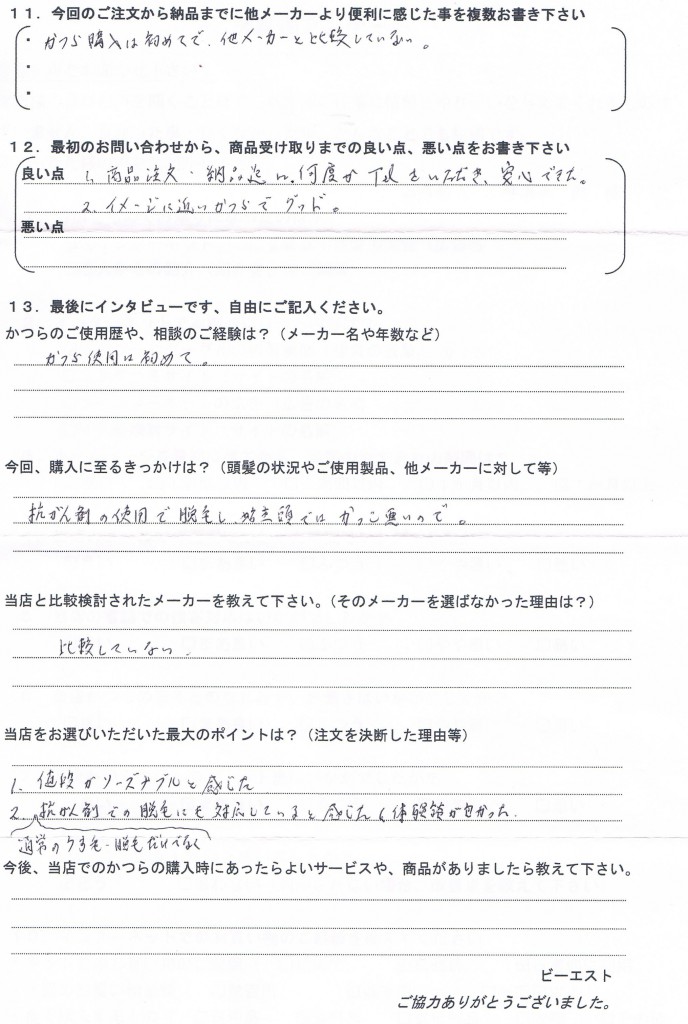 11．今回のご注文から納品までに他メーカーより便利に感じた事を複数お書き下さい
・かつら購入は初めてで、他メーカーと比較していない。
・
・
12．最初のお問い合わせから、商品受け取りまでの良い点、悪い点をお書き下さい
良い点 1、商品注文・納品迄に、何度かTelをいただき、安心できた。
2、イメージに近いかつらでグッド。
悪い点
13．最後にインタビューです、自由にご記入ください。
かつらのご使用歴や、相談のご経験は？（メーカー名や年数など）
かつら使用は初めて。
今回、購入に至るきっかけは？（頭髪の状況やご使用製品、他メーカーに対して等）
抗がん剤の使用で脱毛し、坊主頭ではかっこ悪いので。
当店と比較検討されたメーカーを教えて下さい。（そのメーカーを選ばなかった理由は？）
比較していない。
当店をお選びいただいた最大のポイントは？（注文を決断した理由等）
1、値段がリーズナブルと感じた
2、抗がん剤での脱毛にも対応していると感じた（体験談が良かった
通常のうす毛・脱毛だけでなく
今後、当店でのかつらの購入時にあったらよいサービスや、商品がありましたら教えて下さい。
ビーエスト
ご協力ありがとうございました。